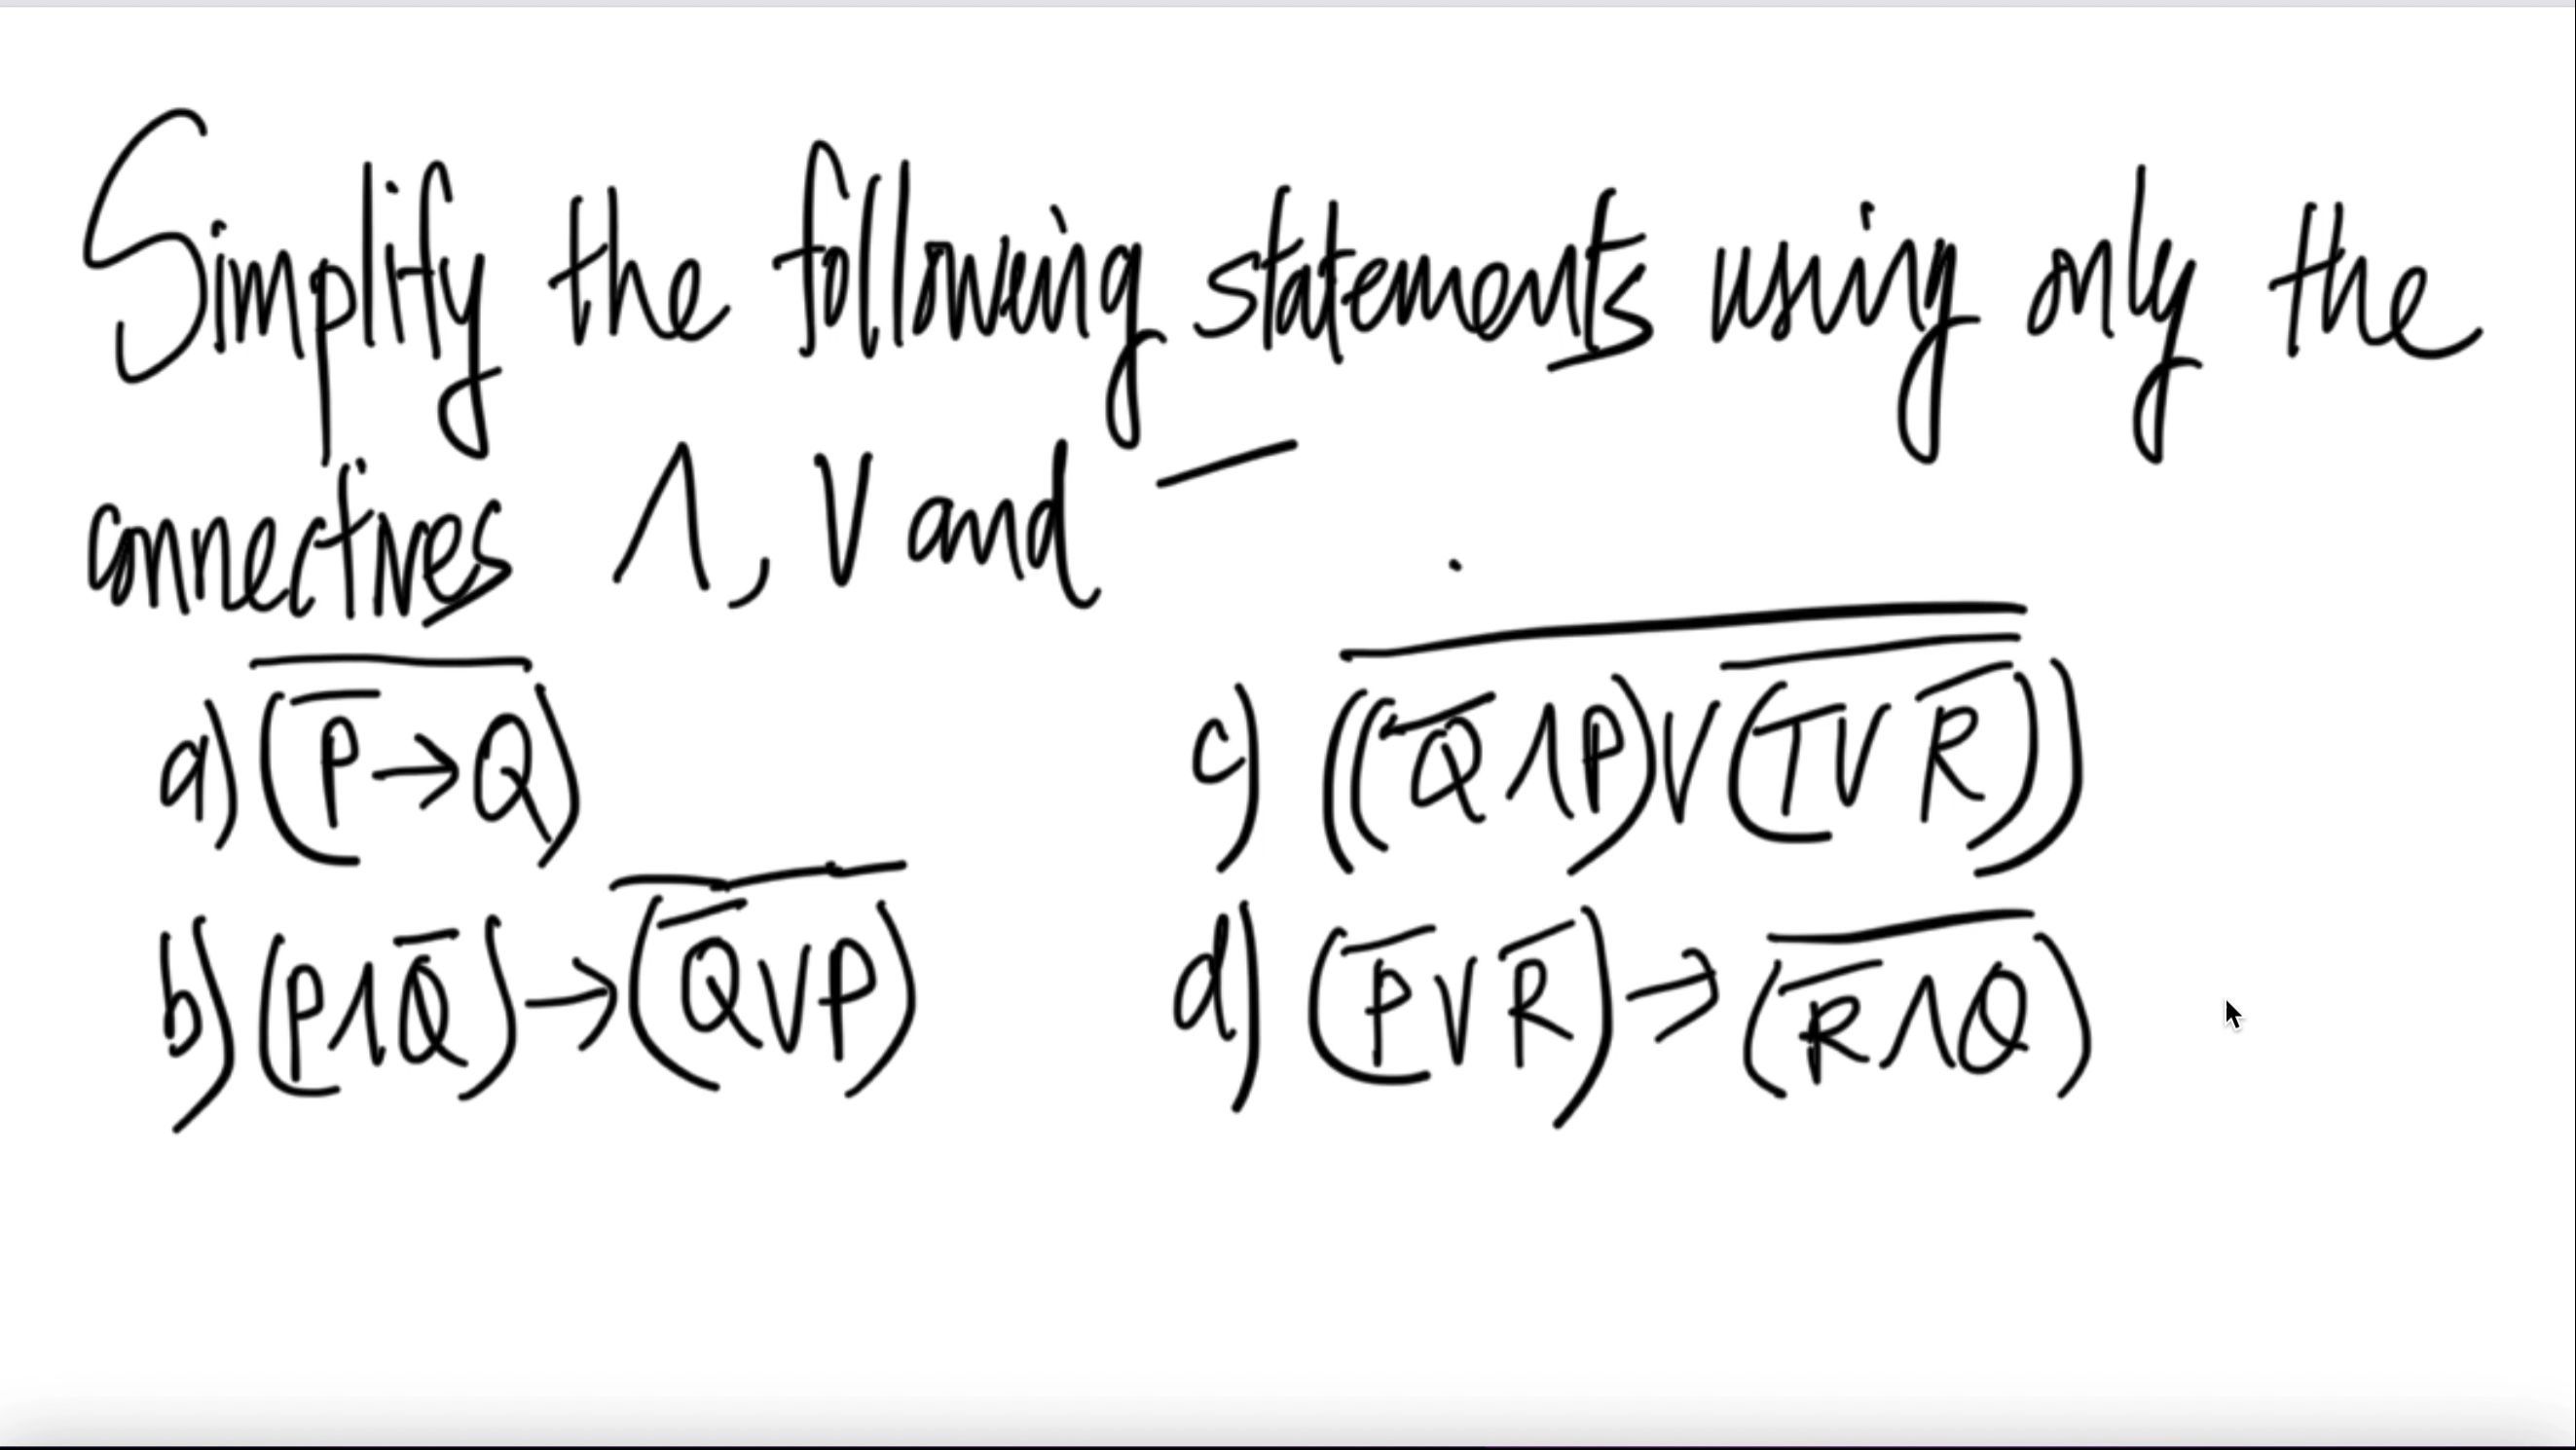 Simplify the following statements using only the
connectives ∧, ∨ and ‾ .
a) \overline{(\overline{P}→Q)}
b) (P∧\overline{Q})→\overline{(\overline{Q}∨P)}
c) \overline{((\overline{Q}∧P)∨\overline{(T∨\overline{R})})}
d) (\overline{P}∨\overline{R})→\overline{(\overline{R}∧Q)}